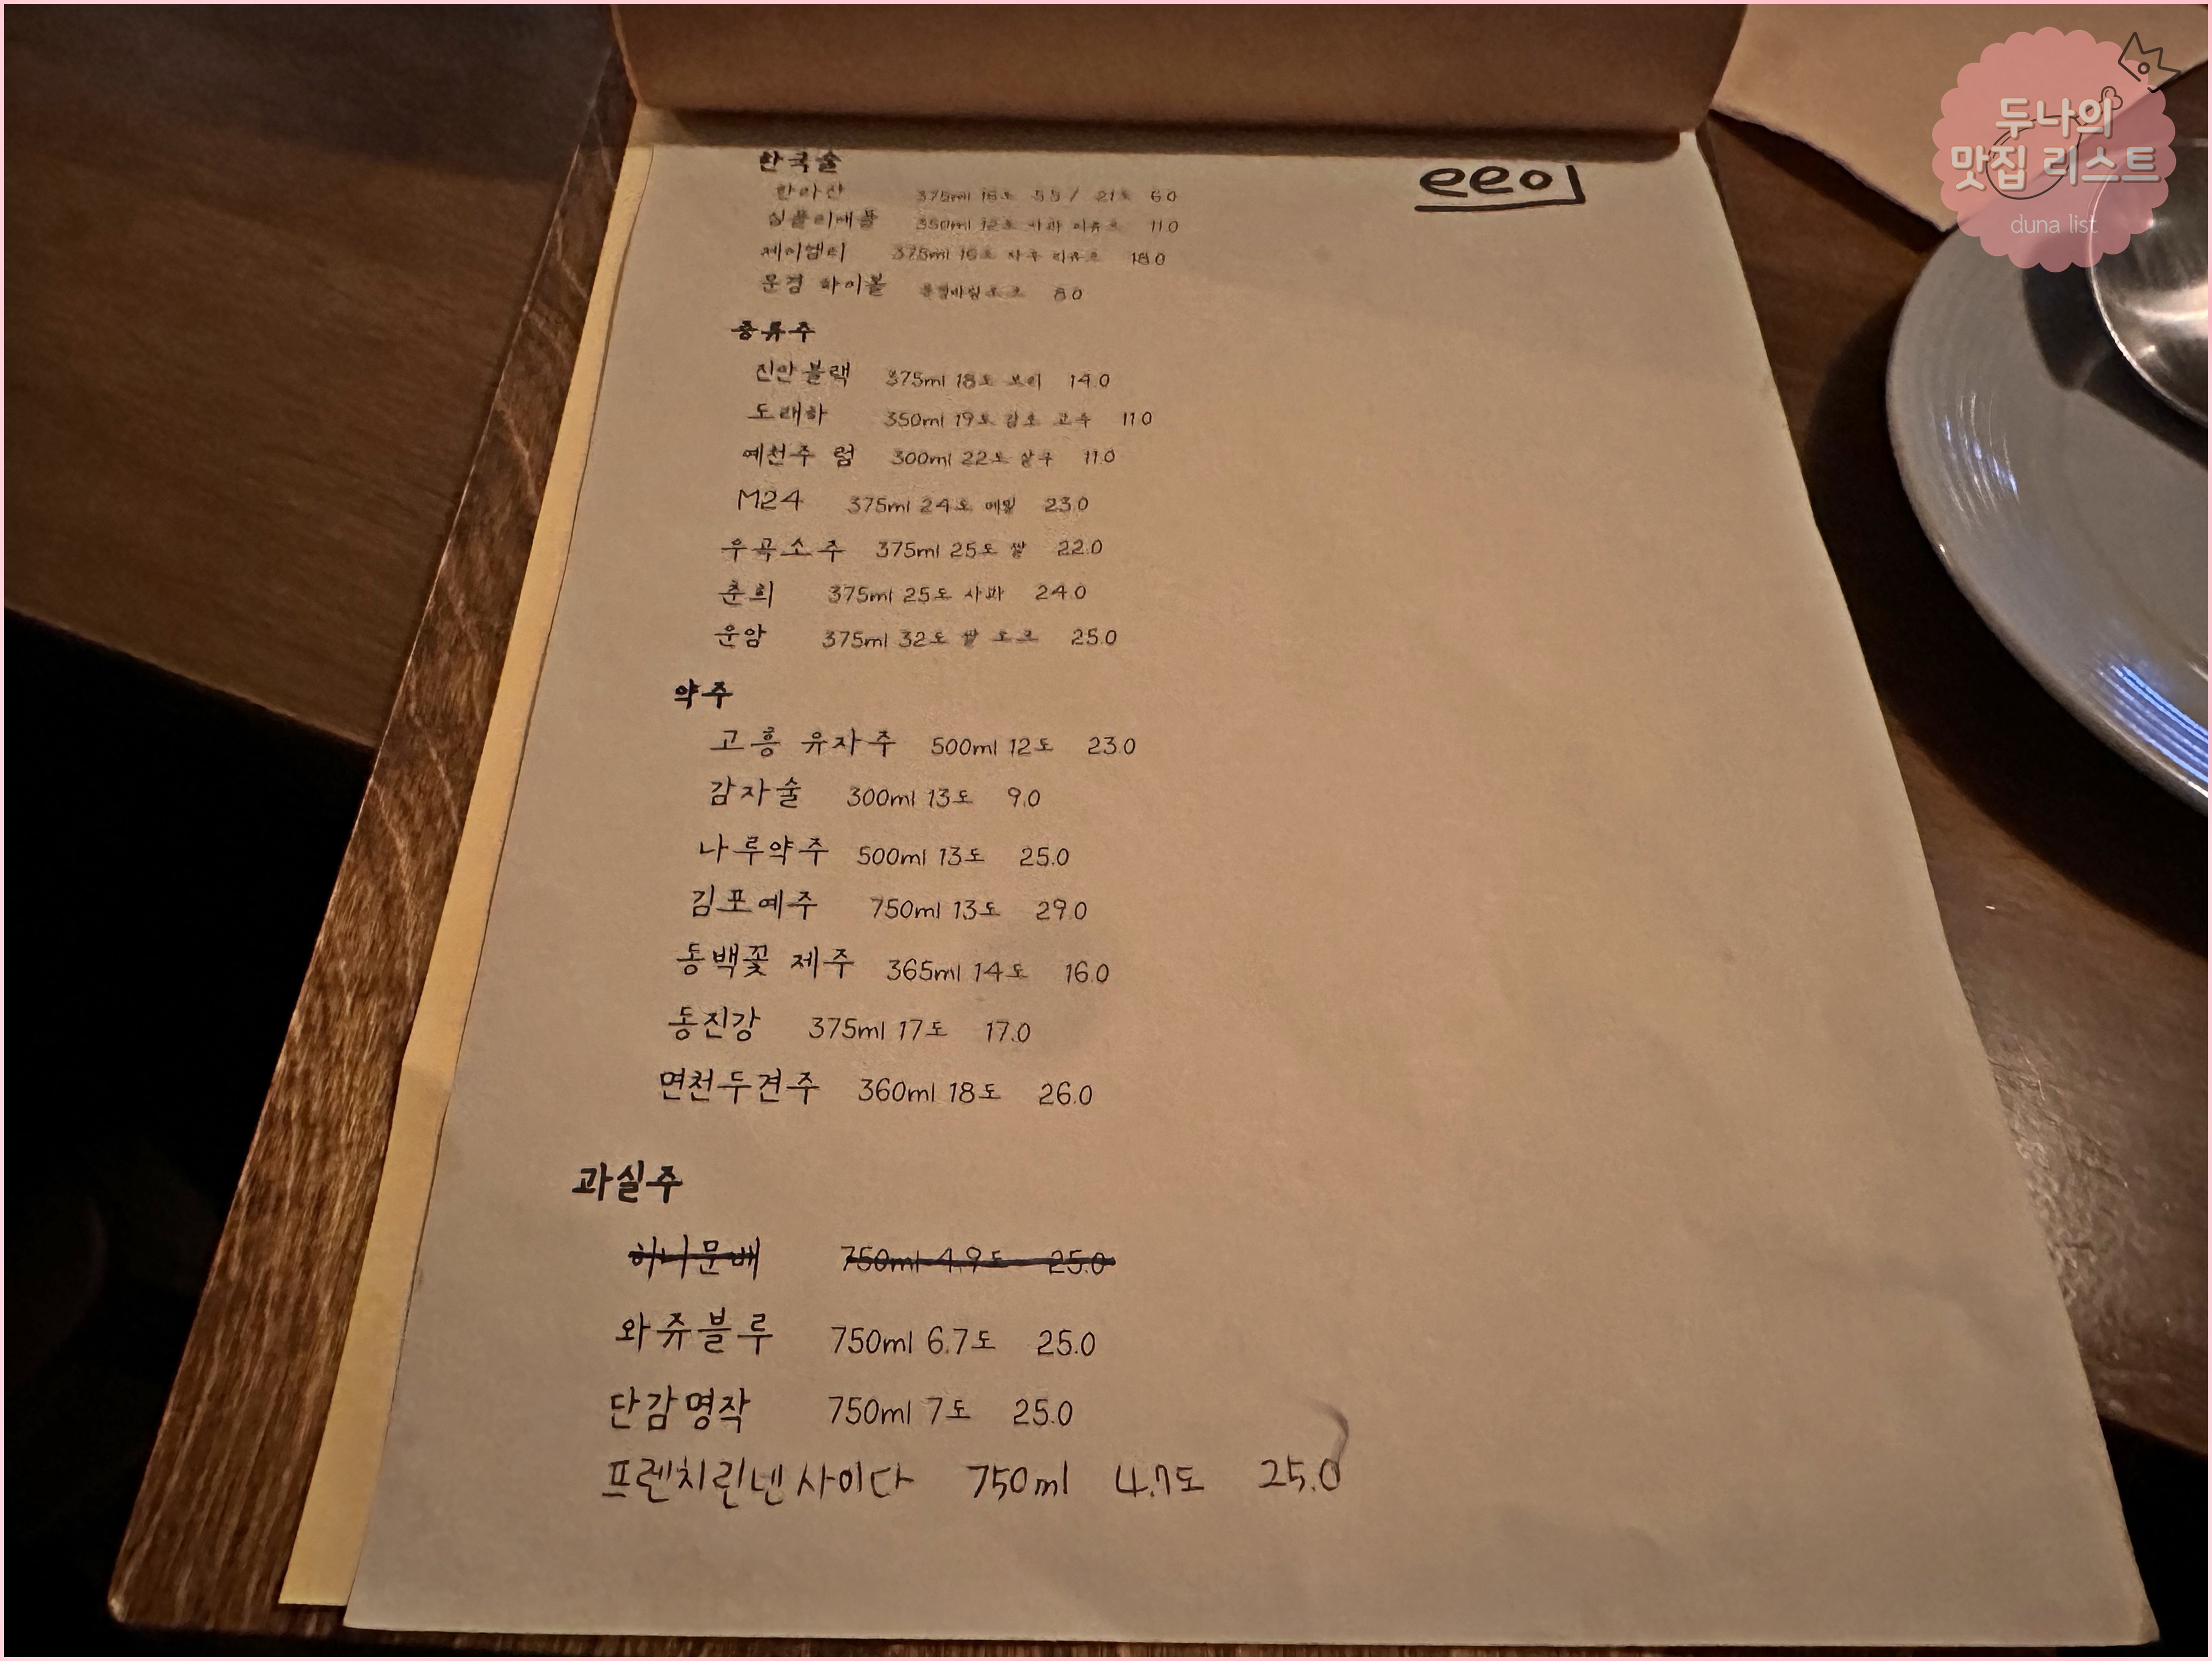 한국술
eeo
한라산 375ml 16도 5.5 / 21도 6.0
심플리애플 350ml 12도 사과 리큐르 11.0
제이엠티 375ml 16도 자두 리큐르 18.0
문경 하이볼 문경바람오크 8.0
증류주
진안블랙 375ml 18도 보리 14.0
도래하 350ml 19도 감초 고수 11.0
예천주 럼 300ml 22도 살구 11.0
M24 375ml 24도 메밀 23.0
우곡소주 375ml 25도 쌀 22.0
춘희 375ml 25도 사과 24.0
운암 375ml 32도 쌀 오크 25.0
약주
고흥 유자주 500ml 12도 23.0
감자술 300ml 13도 9.0
나루약주 500ml 13도 25.0
김포예주 750ml 13도 29.0
동백꽃 제주 365ml 14도 16.0
동진강 375ml 17도 17.0
면천두견주 360ml 18도 26.0
과실주
허니문배 750ml 4.9도 25.0
와쥬블루 750ml 6.7도 25.0
단감명작 750ml 7도 25.0
프렌치린넨사이다 750ml 4.7도 25.0
두나의
맛집 리스트
duna list